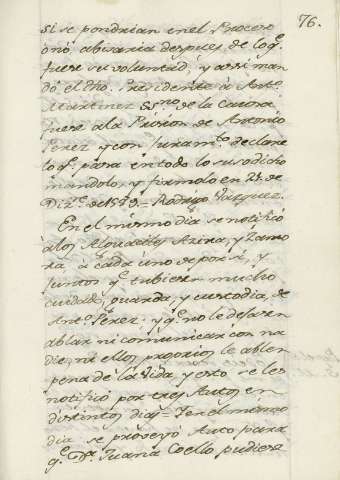 76.
si se pondrian en el Proceso
o nó, abisaria despues de lo q.e
fuese su voluntad, y assi man
dó el dho. Presidente à Ant.o
Martinez SS.no de la Causa
fuese a la Prision de Antonio
Perez y con Juram.to declare
lo q.e pasa en todo lo susodicho
mandolo, y firmolo en 21. de
Diz.e de 1589. = Rodrigo Vazquez.
En el mismo dia se notificó
à los Alguaciles Azira, y Zamo
ra, à cada uno se por sí, y
juntos q.e tubiesen mucho
cuidado, guarda, y custodia, de
Ant.o Perez, y q.e no le dejasen
ablar ni comunicar con na
die, ni ellos propios le ablen
pena de la vida, y esto se les
notificó por tres Autos en
distintos dias. Y en el mismo
dia se proveyó Auto para
q.e D.a Juana Coello pudiese